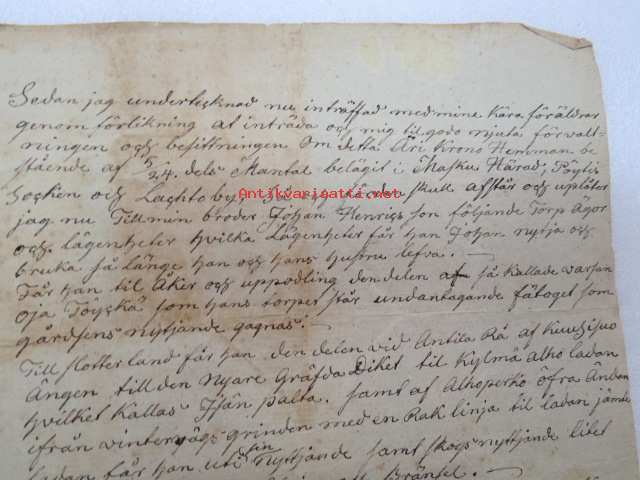 Sedan jag underteсknad nu inträffad med mine Kära föräldrar
genom förlikning at inträda och mig til godo njuta förvalt-
ningen och besittningen Om detta Äri Krono Hemman be
stående af 5/24. dels Mantal belägit i Masku Härad, Pöytis
Socken och Lachto by. skull afstår och uplåter
Antikvariaatti.net
jag nu Till min broder Johan Henrics son följande Torp Ägor
och lägenheter hvilka Lägenheter får han Johan nyttja och
bruka så länge han och hans hustru lefva. —
Får han til Åker och uppodling den delen af så kallade varsan
oja Töyskä som hans torpet står undantagande fätoget som
gårdsens nyttjande gagnas. —
Till slotterland får han den delen vid Antila Rå af
Ängen till den Nyare Gräfda Diket til Kylmä alho ladan
hvilket kallas Isän palta. samt af Alhoperko öfra Ändan
ifrån vinterväg grinden med en Rak linja til ladan jämte
ladan får han uti sin Nyttjande samt skogs nyttjande litet
Bränsel. —